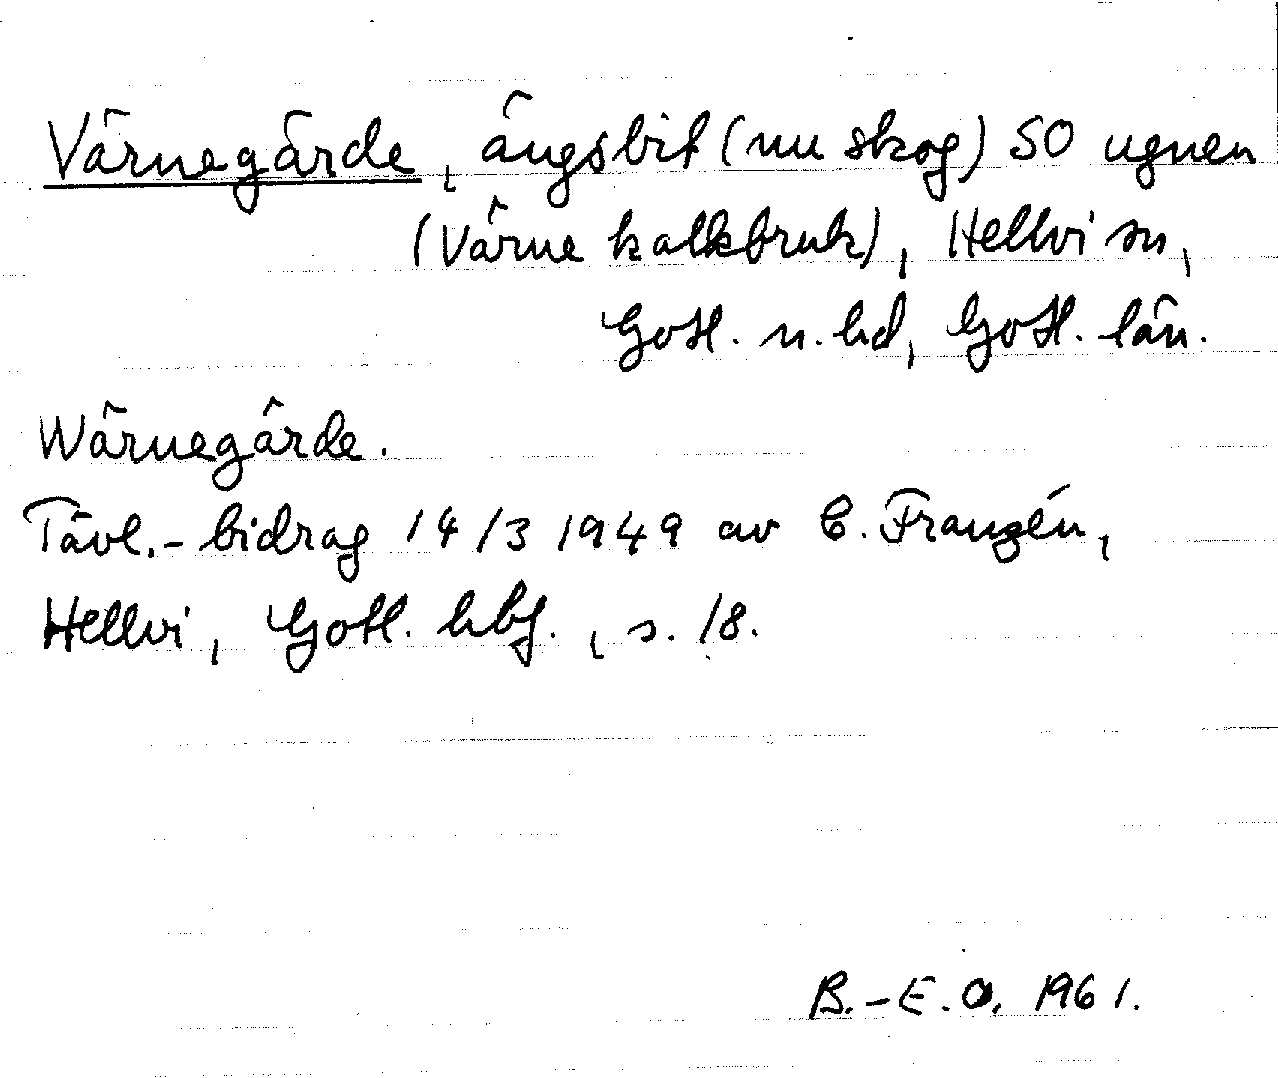 Värnegärde, ängsbit (nu skog) SO ugnen
(Värne kalkbruk), Hellvi sn,
Gotl. n. hd, Gotl. län.
Wärnegärde.
Tävl.-bidrag 14/3 1949 av C. Franzén,
Hellvi, Gotl. hbf., s. 18.
B.-E. O. 1961.